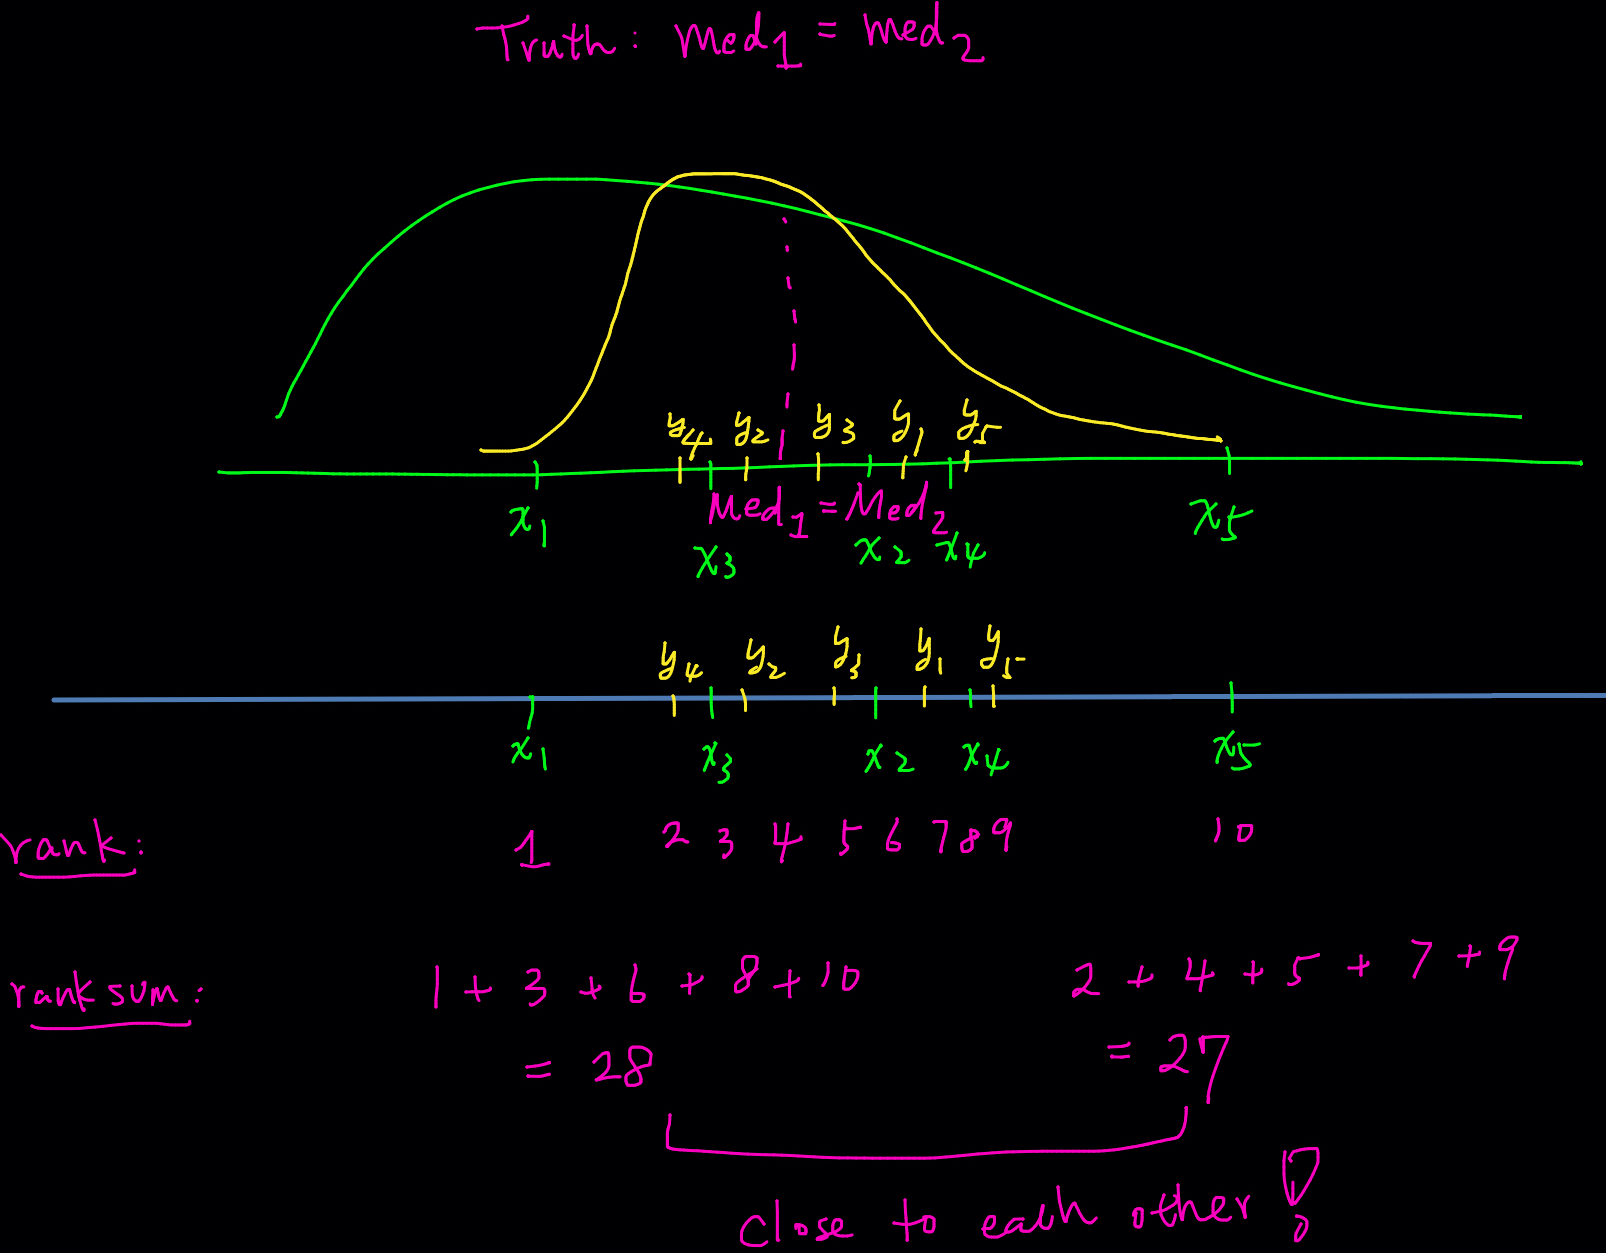 Truth: Med₁ = Med₂
y₄ y₂ y₃ y₁ y₅
Med₁ = Med₂
x₁ x₃ x₂ x₄ x₅
y₄ y₂ y₃ y₁ y₅
x₁ x₃ x₂ x₄ x₅
rank: 1 2 3 4 5 6 7 8 9 10
rank sum: 1 + 3 + 6 + 8 + 10 2 + 4 + 5 + 7 + 9
= 28 = 27
close to each other !